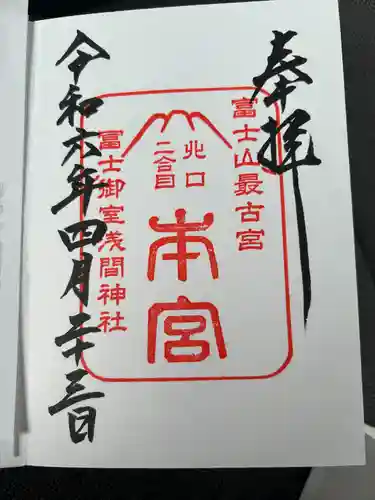 奉拝
富士山最古宮
北口
二合目
本宮
冨士御室浅間神社
令和六年四月二十三日